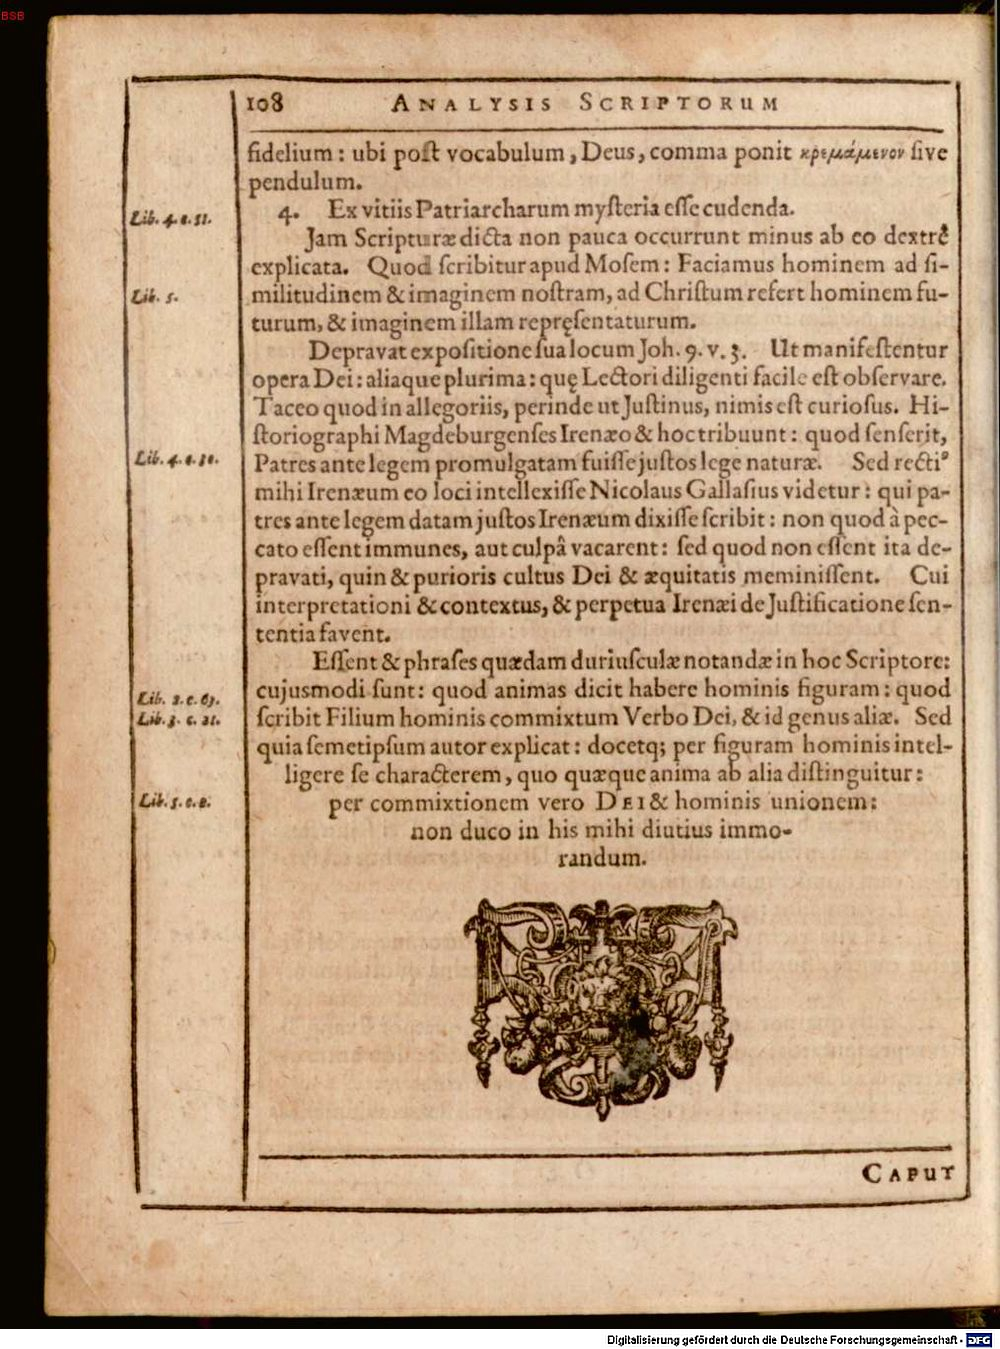 BSB
108 ANALYSIS SCRIPTORUM
fidelium: ubi post vocabulum, Deus, comma ponit κρεμάμενον sive
pendulum.
Lib. 4. c. 51.
4. Ex vitiis Patriarcharum mysteria esse cudenda.
Jam Scripturæ dicta non pauca occurrunt minus ab eo dextrè
explicata. Quod scribitur apud Mosem: Faciamus hominem ad si-
Lib. 5.
militudinem & imaginem nostram, ad Christum refert hominem fu-
turum, & imaginem illam repręsentaturum.
Depravat expositione sua locum Joh. 9. v. 3. Ut manifestentur
opera Dei: aliaque plurima: quę Lectori diligenti facile est observare.
Taceo quod in allegoriis, perinde ut Justinus, nimis est curiosus. Hi-
storiographi Magdeburgenses Irenæo & hoc tribuunt: quod senserit,
Lib. 4. c. 30.
Patres ante legem promulgatam fuisse justos lege naturæ. Sed rectiꝰ
mihi Irenæum eo loci intellexisse Nicolaus Gallasius videtur: qui pa-
tres ante legem datam justos Irenæum dixisse scribit: non quod à pec-
cato essent immunes, aut culpâ vacarent: sed quod non essent ita de-
pravati, quin & purioris cultus Dei & æquitatis meminissent. Cui
interpretationi & contextus, & perpetua Irenæi de Justificatione sen-
tentia favent.
Essent & phrases quædam duriusculæ notandæ in hoc Scriptore:
Lib. 2. c. 63.
cujusmodi sunt: quod animas dicit habere hominis figuram: quod
Lib. 3. c. 21.
scribit Filium hominis commixtum Verbo Dei, & id genus aliæ. Sed
quia semetipsum autor explicat: docetq; per figuram hominis intel-
ligere se characterem, quo quæque anima ab alia distinguitur:
Lib. 5. c. 2.
per commixtionem vero DEI & hominis unionem:
non duco in his mihi diutius immo-
randum.
CAPUT
Digitalisierung gefördert durch die Deutsche Forschungsgemeinschaft - DFG